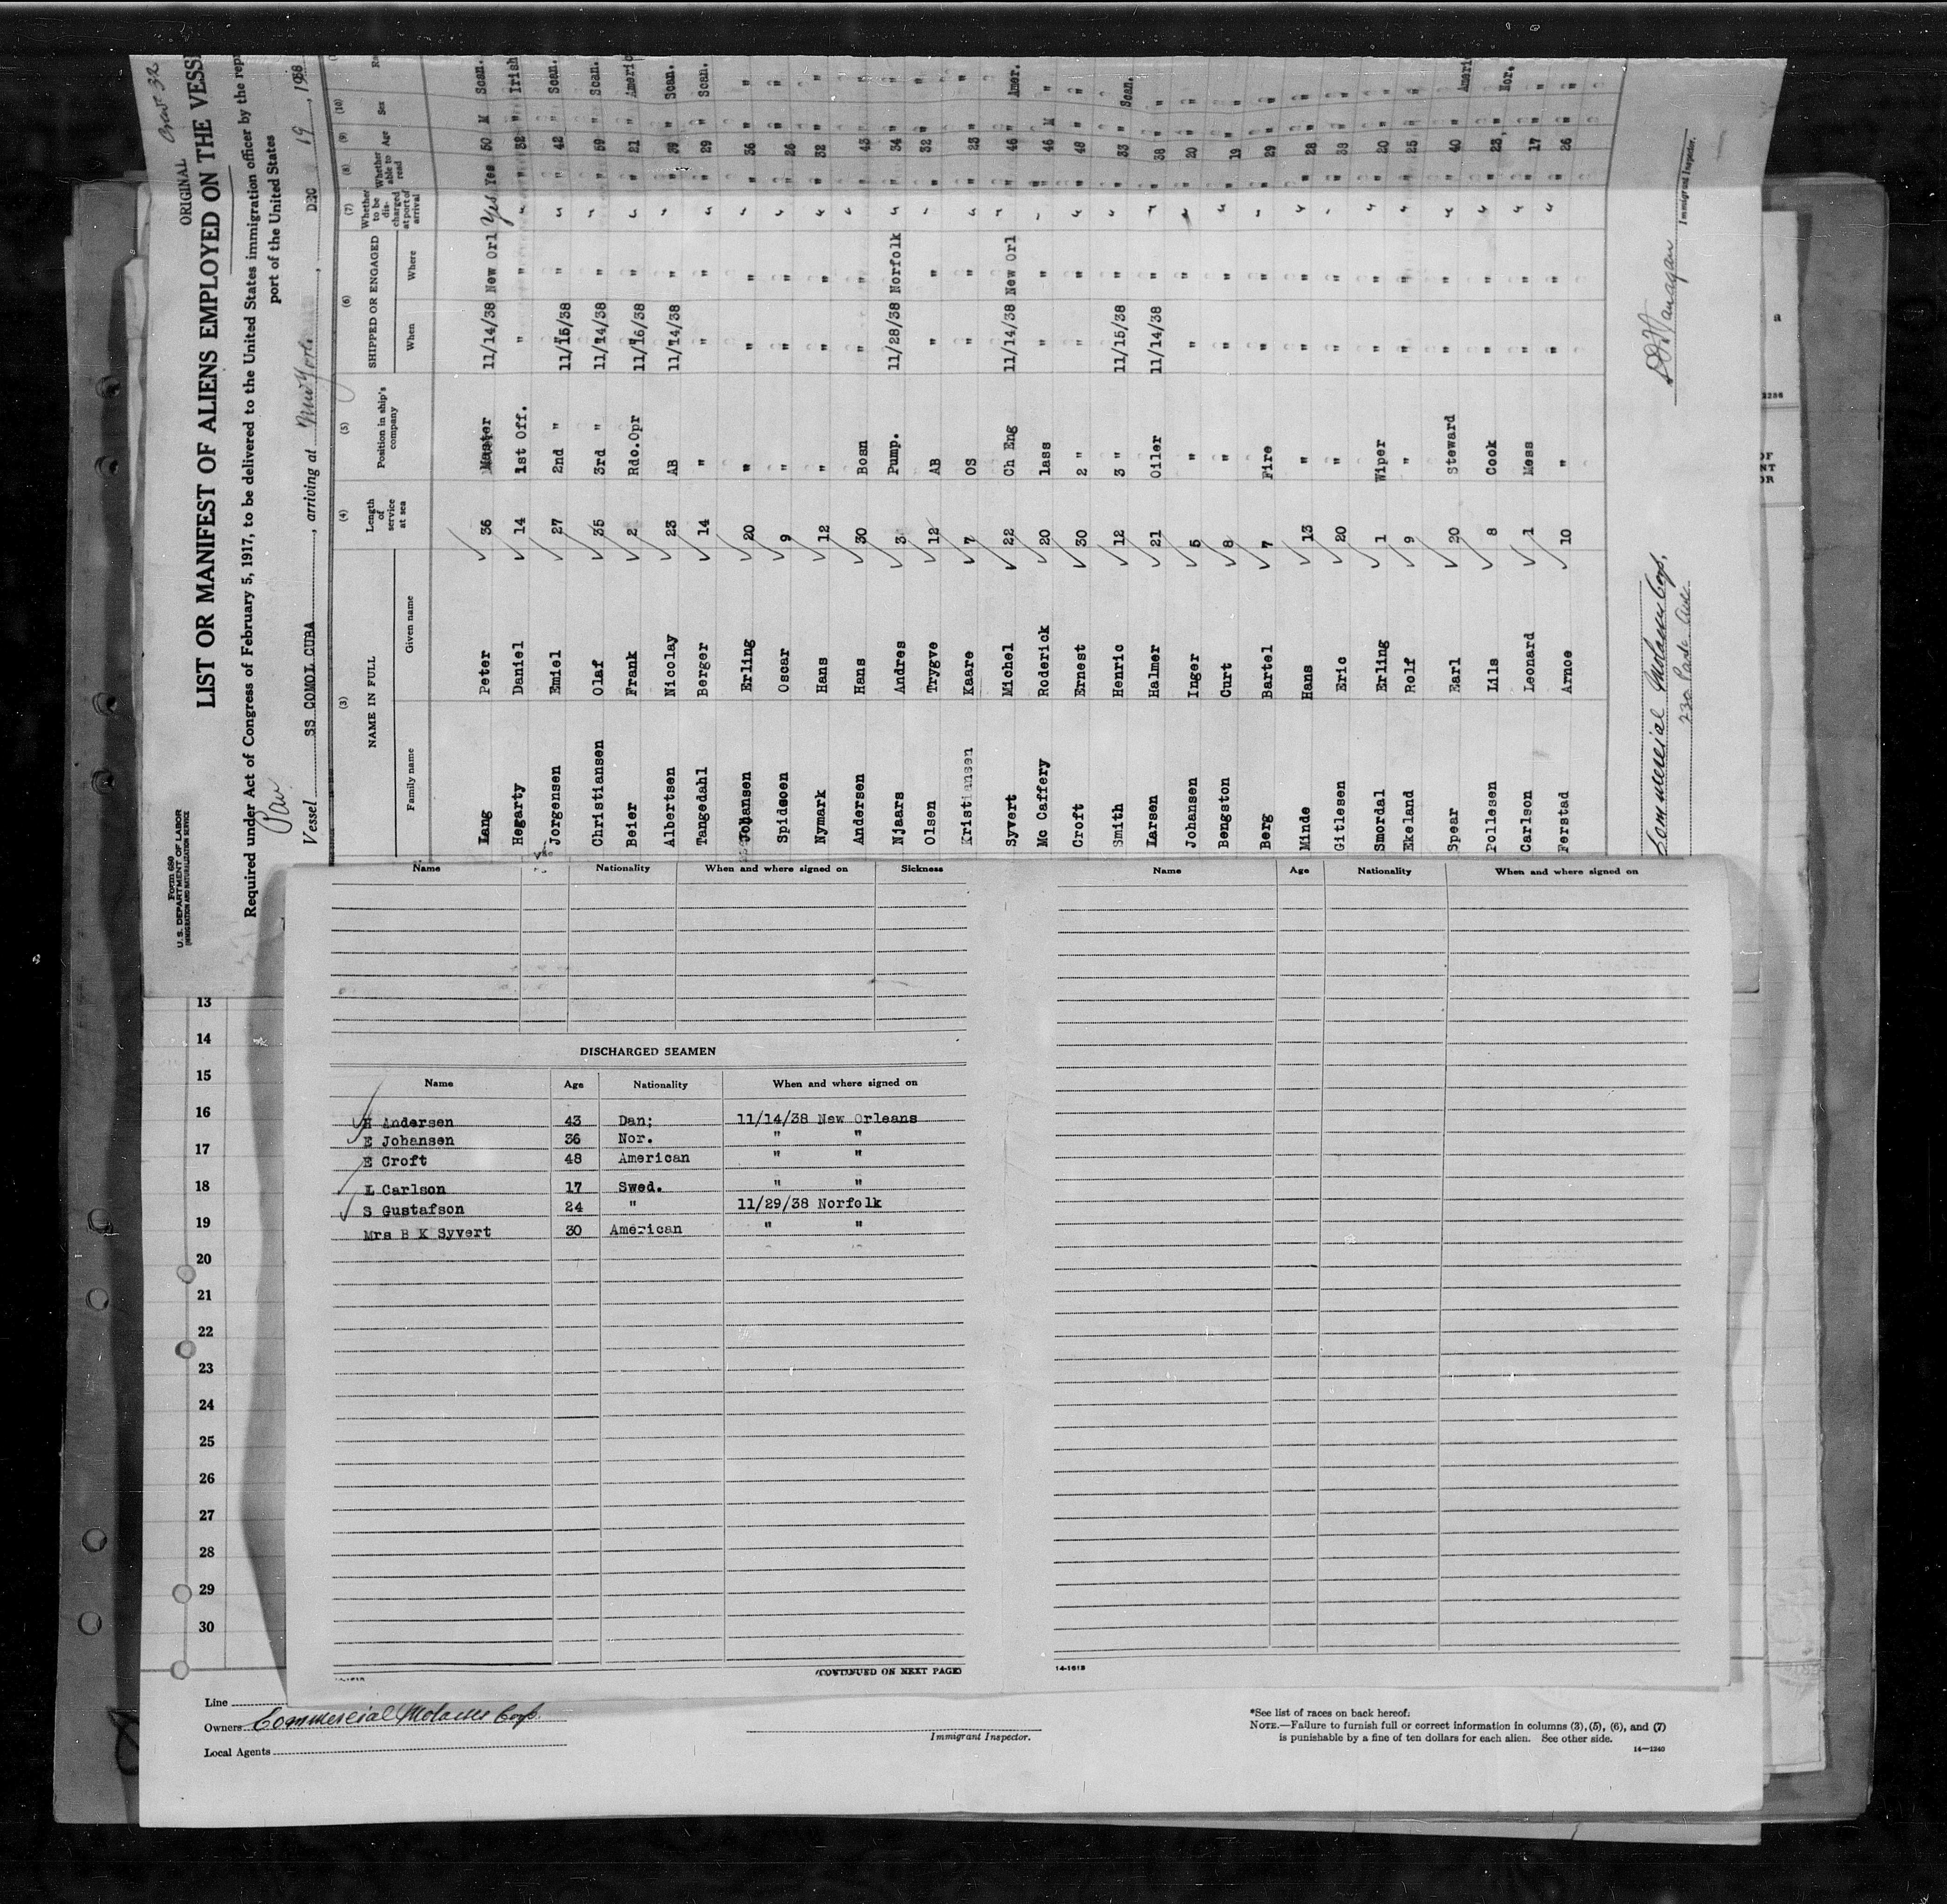 ORIGINAL Crew 32
Form 680
U. S. DEPARTMENT OF LABOR
IMMIGRATION AND NATURALIZATION SERVICE
LIST OR MANIFEST OF ALIENS EMPLOYED ON THE VESS
Required under Act of Congress of February 5, 1917, to be delivered to the United States immigration officer by the rep
port of the United States
Vessel SS COMOL CUBA, arriving at New York, DEC 19, 1938
(3) (4) (5) (6) (7) (8) (9) (10)
NAME IN FULL Length of service at sea Position in ship's company SHIPPED OR ENGAGED Whether to be discharged at port of arrival Whether able to read Age Sex
Family name Given name When Where
Lang Peter 36 Master 11/14/38 New Orl Yes Yes 50 M Scan.
Hegarty Daniel 14 1st Off. " " " " 32 " Irish
Jorgensen Emiel 27 2nd " 11/15/38 " " " 42 " Scan.
Christiansen Olaf 35 3rd " 11/14/38 " " " 59 " Scan.
Beier Frank 2 Rdo.Opr 11/16/38 " " " 21 " Americ
Albertsen Nicolay 23 AB 11/14/38 " " " 39 " Scan.
Tangedahl Berger 14 " " " " " 29 " Scan.
Johansen Erling 20 " " " " " 36 " "
Spidsoen Oscar 9 " " " " " 26 " "
Nymark Hans 12 " " " " " 32 " "
Andersen Hans 30 Bosn " " " " 43 " "
Njaars Andres 3 Pump. 11/28/38 Norfolk " " 34 " "
Olsen Trygve 12 AB " " " " 32 " "
Kristiansen Kaare 7 OS " " " " 23 " "
Syvert Michel 22 Ch Eng 11/14/38 New Orl " " 46 " Amer.
Mc Caffery Roderick 20 1ass " " " " 46 M "
Croft Ernest 30 2 " " " " " 48 " "
Smith Henric 12 3 " 11/15/38 " " " 33 " Scan.
Larsen Halmer 21 Oiler 11/14/38 " " " 38 " "
Johansen Inger 5 " " " " " 20 " "
Bengston Curt 8 " " " " " 19 " "
Berg Bartel 7 Fire " " " " 29 " "
Minde Hans 13 " " " " " 28 " "
Gitlesen Eric 20 " " " " " 39 " "
Smordal Erling 1 Wiper " " " " 20 " "
Ekeland Rolf 9 " " " " " 25 " "
Spear Earl 20 Steward " " " " 40 " Ameri
Pollesen Lils 8 Cook " " " " 23, " Nor.
Carlson Leonard 1 Mess " " " " 17 " "
Ferstad Arnoe 10 " " " " " 26 " "
Commercial Molasses Corp.
230 Park Ave.
Immigrant Inspector.
Name Nationality When and where signed on Sickness
Name Age Nationality When and where signed on
DISCHARGED SEAMEN
Name Age Nationality When and where signed on
H Andersen 43 Dan; 11/14/38 New Orleans
E Johansen 36 Nor. " "
E Croft 48 American " "
L Carlson 17 Swed. " "
S Gustafson 24 " 11/29/38 Norfolk
Mrs B K Syvert 30 American " "
(CONTINUED ON NEXT PAGE)
14-1613
13
14
15
16
17
18
19
20
21
22
23
24
25
26
27
28
29
30
Line
Owners Commercial Molasses Corp.
Local Agents
Immigrant Inspector.
*See list of races on back hereof.
NOTE.—Failure to furnish full or correct information in columns (3), (5), (6), and (7)
is punishable by a fine of ten dollars for each alien. See other side.
14—1240